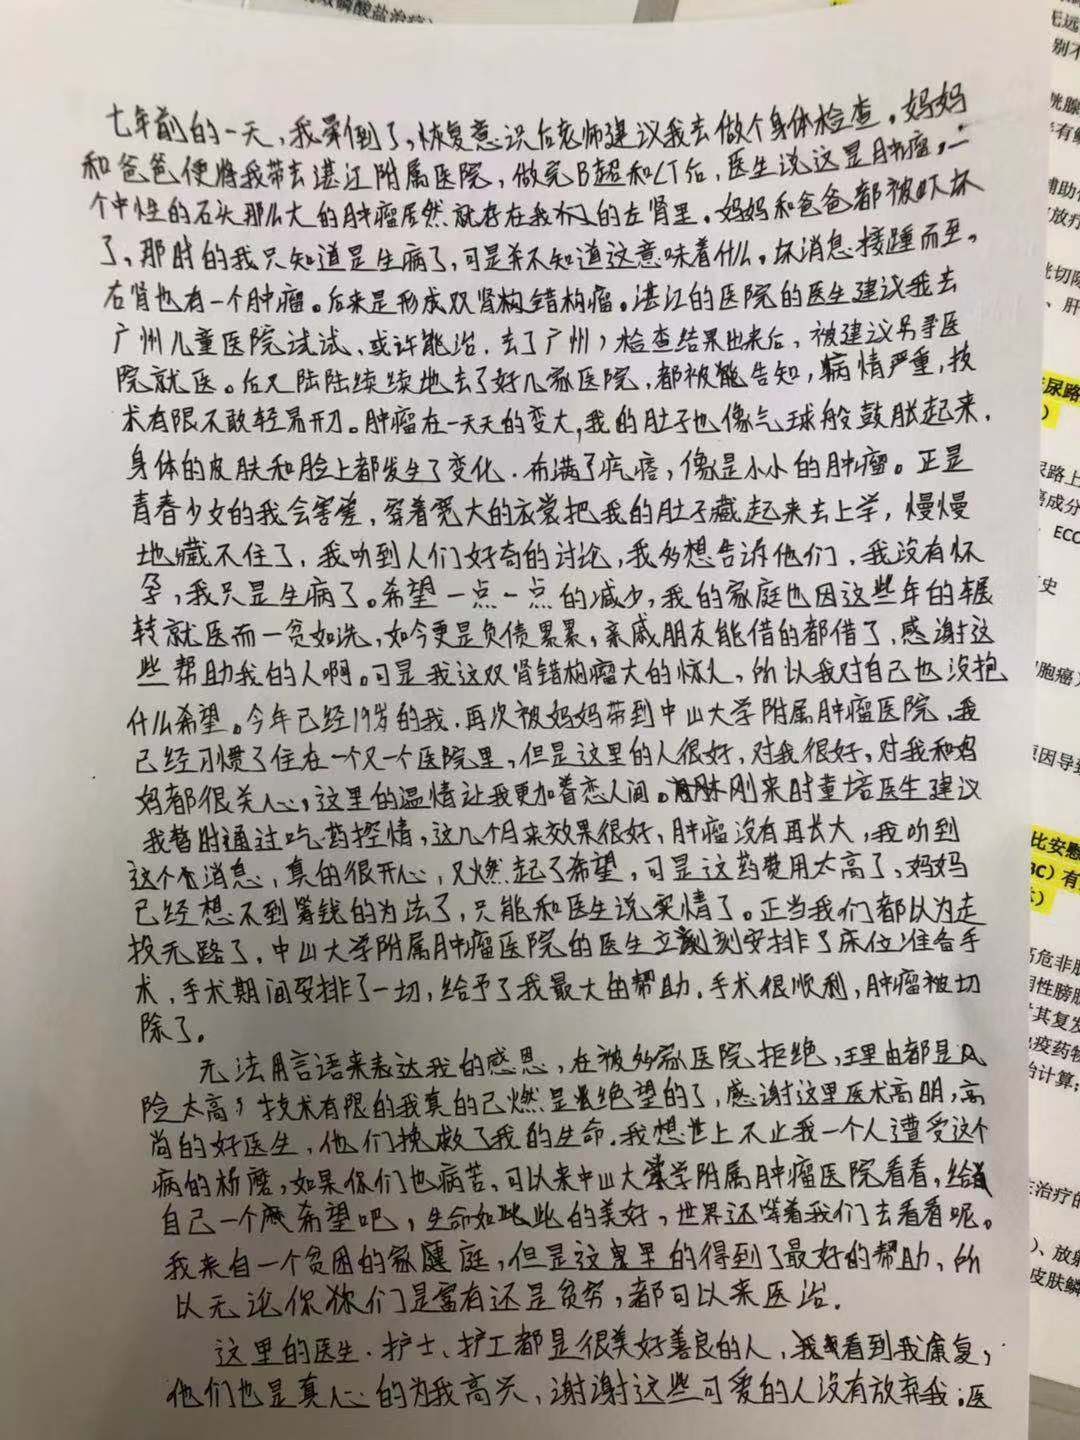 七年前的一天，我晕倒了，恢复意识后老师建议我去做个身体检查。妈妈
和爸爸便将我带去湛江附属医院，做完B超和CT后，医生说这是肿瘤，一
个中性的石头那么大的肿瘤居然就存在我的左肾里。妈妈和爸爸都被吓坏
了，那时的我只知道是生病了，可是并不知道这意味着什么。坏消息接踵而至。
右肾也有一个肿瘤。后来是形成双肾构错构瘤。湛江的医院的医生建议我去
广州儿童医院试试、或许能治．去了广州，检查结果出来后，被建议另寻医
院就医。后又陆陆续续地去了好几家医院，都被告知，病情严重，技
术有限不敢轻易开刀。肿瘤在一天天的变大，我的肚子也像气球般鼓胀起来，
身体的皮肤和脸上都发生了变化．布满了疙瘩，像是小小的肿瘤。正是
青春少女的我会害羞，穿着宽大的衣裳把我的肚子藏起来去上学，慢慢
地藏不住了，我听到人们好奇的讨论，我多想告诉他们，我没有怀
孕，我只是生病了。希望一点一点的减少，我的家庭也因这些年的辗
转就医而一贫如洗，如今更是负债累累，亲戚朋友能借的都借了，感谢这
些帮助我的人啊。可是我这双肾错构瘤大的惊人，所以我对自己也没抱
什么希望。今年已经19岁的我．再次被妈妈带到中山大学附属肿瘤医院，我
已经习惯了住在一个又一个医院里，但是这里的人很好，对我很好，对我和妈
妈都很关心，这里的温情让我更加眷恋人间。刚来时董培医生建议
我暂时通过吃药控情，这几个月来效果很好，肿瘤没有再长大，我听到
这个消息，真的很开心，又燃起了希望，可是这药费用太高了，妈妈
已经想不到筹钱的办法了，只能和医生说实情了。正当我们都以为走
投无路了，中山大学附属肿瘤医院的医生立刻安排了床位准备手
术，手术期间安排了一切，给予了我最大的帮助．手术很顺利，肿瘤被切
除了。
无法用言语来表达我的感恩，在被多家医院拒绝，理由都是风
险太高，技术有限的我真的已燃是绝望的了，感谢这里医术高明，高
尚的好医生，他们挽救了我的生命．我想世上不止我一个人遭受这个
病的折磨，如果你们也病苦，可以来中山大学附属肿瘤医院看看，给
自己一个希望吧，生命如此的美好，世界还等着我们去看看呢。
我来自一个贫困的家庭，但是这里的得到了最好的帮助，所
以无论你们是富有还是贫穷，都可以来医治．
这里的医生．护士、护工都是很美好善良的人，看到我康复，
他们也是真心的为我高兴，谢谢这些可爱的人没有放弃我；医